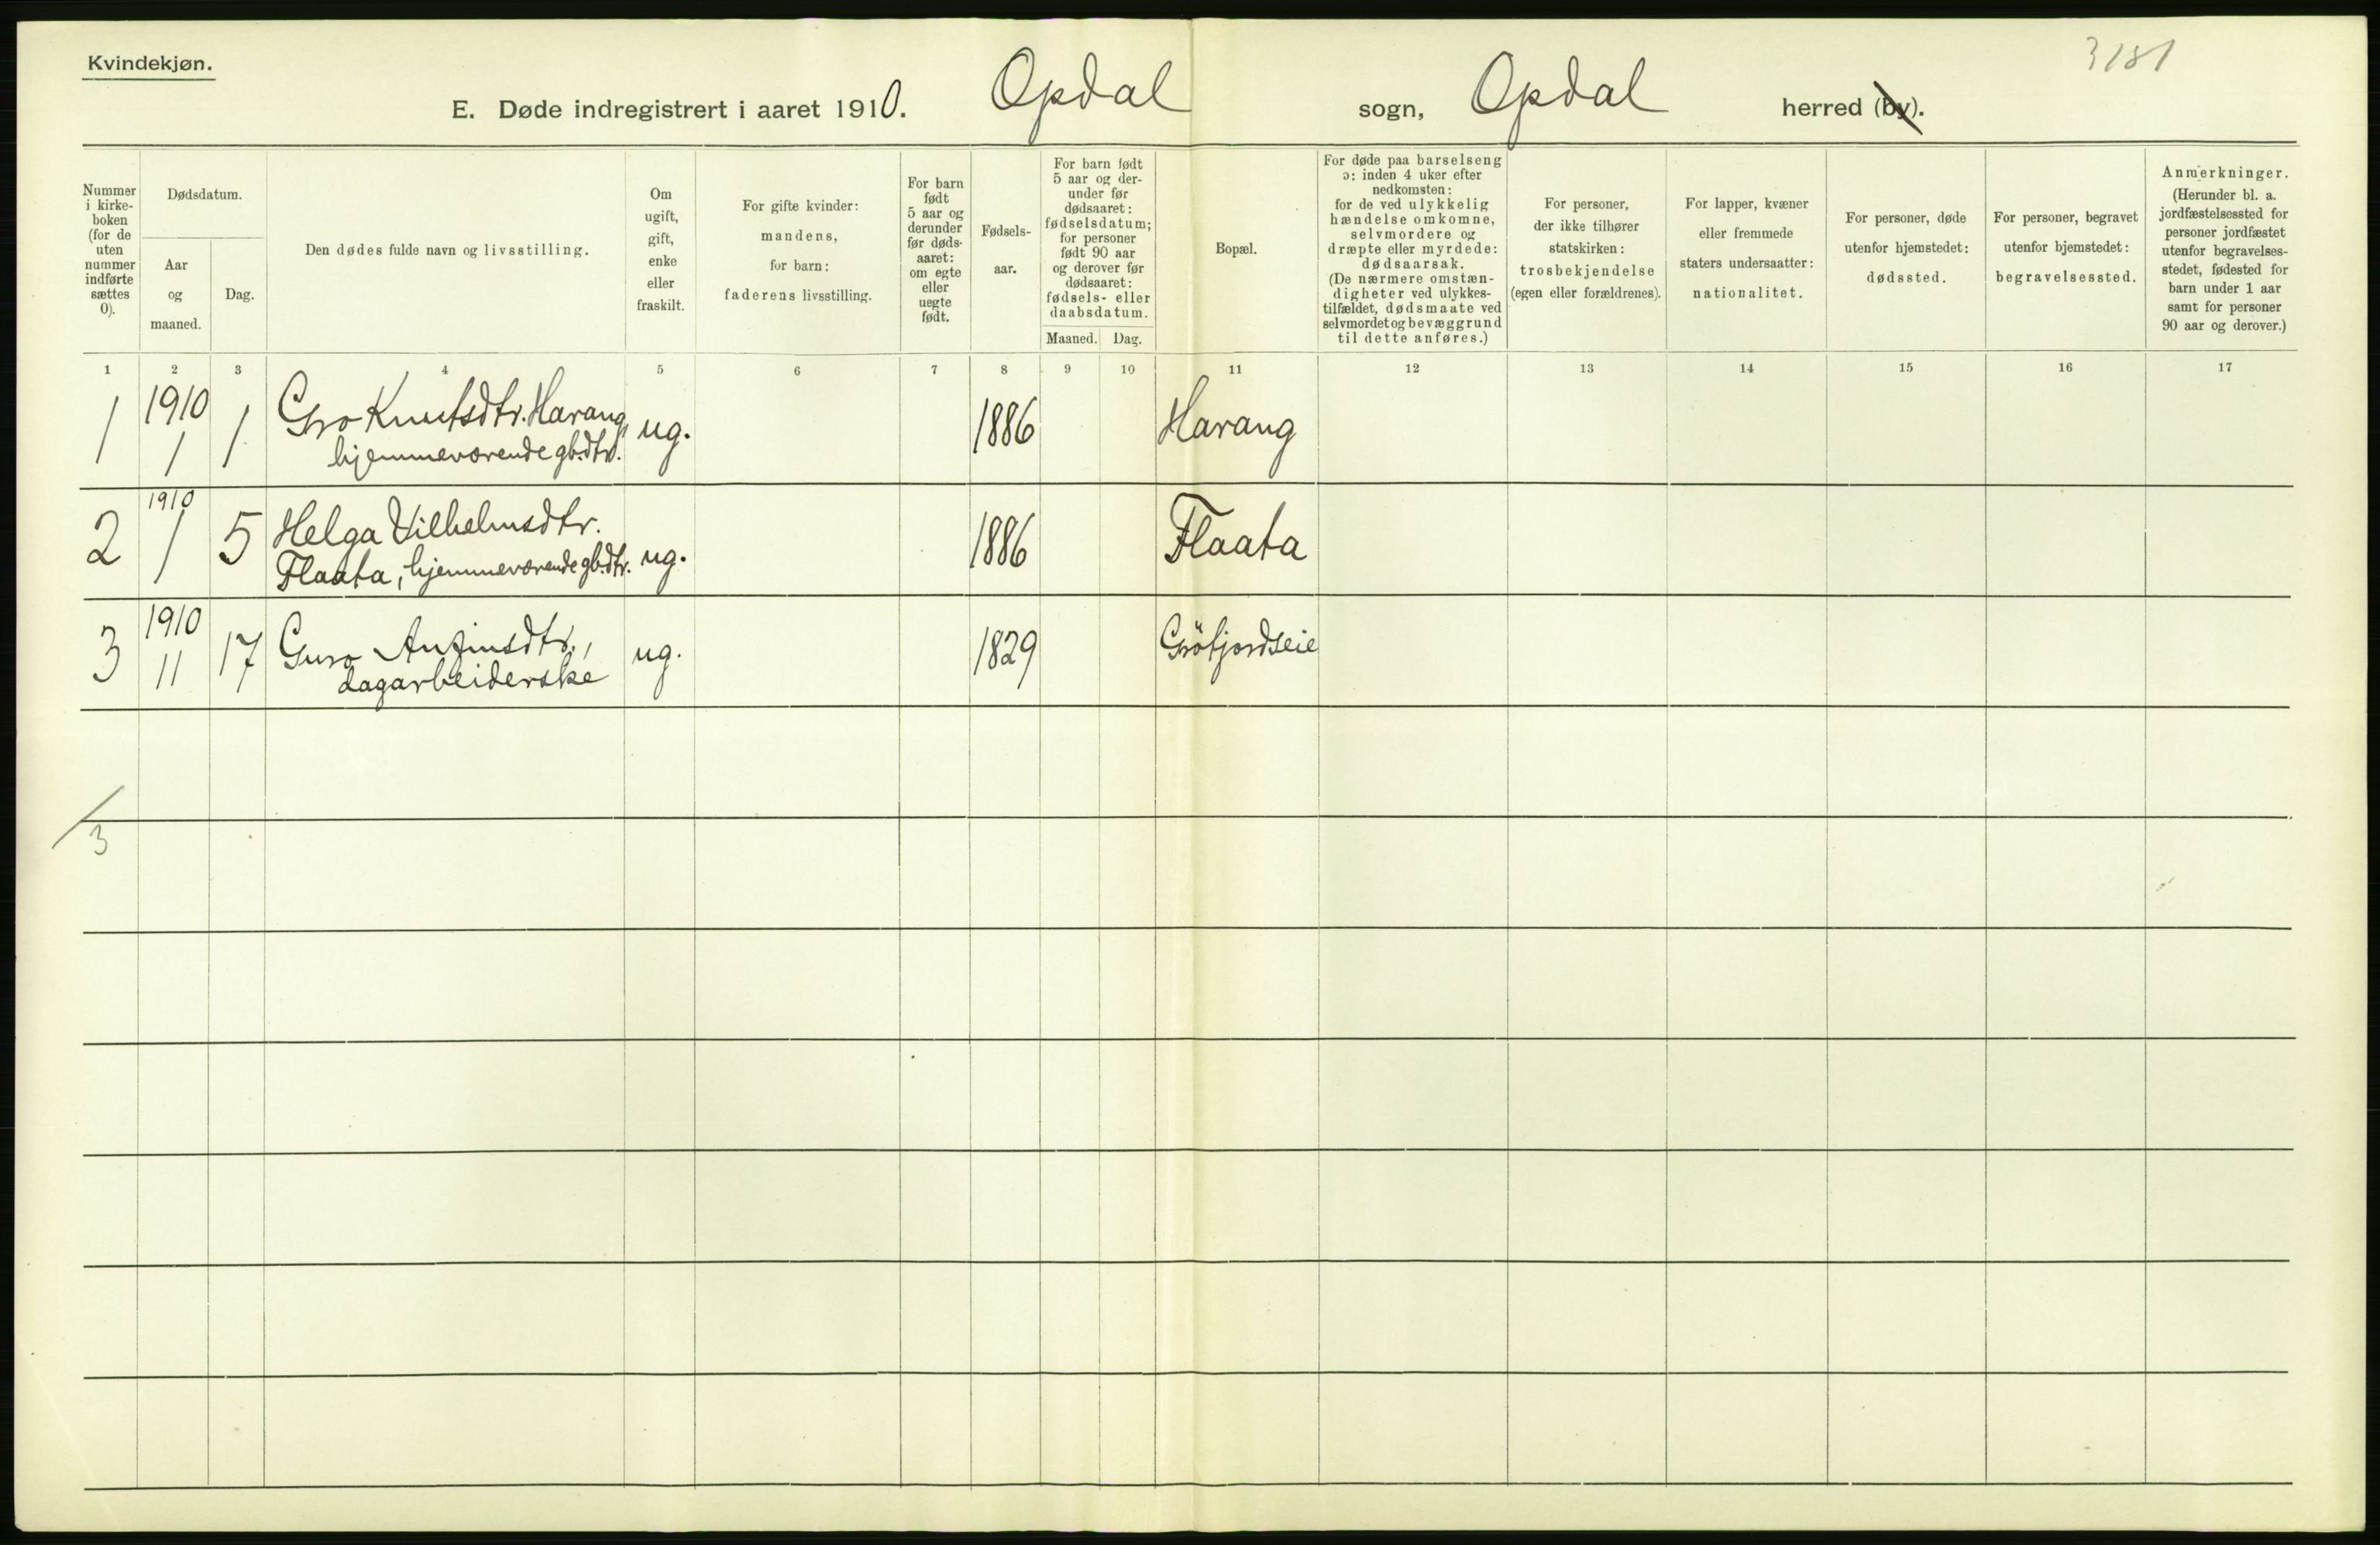 Kvindekjøn.
3181
E. Døde indregistrert i aaret 1910. Opdal sogn, Opdal herred (by).
Nummer
i kirke-
boken
(for de
uten
nummer
indførte
sættes
0).
Dødsdatum.
Aar
og
maaned.
Dag.
Den dødes fulde navn og livsstilling.
Om
ugift,
gift,
enke
eller
fraskilt.
For gifte kvinder:
mandens,
for barn:
faderens livsstilling.
For barn
født
5 aar og
derunder
før døds-
aaret:
om egte
eller
uegte
født.
Fødsels-
aar.
For barn født
5 aar og der-
under før
dødsaaret:
fødselsdatum;
for personer
født 90 aar
og derover før
dødsaaret:
fødsels- eller
daabsdatum.
Maaned. Dag.
Bopæl.
For døde paa barselseng
ɔ: inden 4 uker efter
nedkomsten:
for de ved ulykkelig
hændelse omkomne,
selvmordere og
dræpte eller myrdede:
dødsaarsak.
(De nærmere omstæn-
digheter ved ulykkes-
tilfældet, dødsmaate ved
selvmordet og bevæggrund
til dette anføres.)
For personer,
der ikke tilhører
statskirken:
trosbekjendelse
(egen eller forældrenes).
For lapper, kvæner
eller fremmede
staters undersaatter:
nationalitet.
For personer, døde
utenfor hjemstedet:
dødssted.
For personer, begravet
utenfor hjemstedet:
begravelsessted.
Anmerkninger.
(Herunder bl. a.
jordfæstelsessted for
personer jordfæstet
utenfor begravelses-
stedet, fødested for
barn under 1 aar
samt for personer
90 aar og derover.)
1 2 3 4 5 6 7 8 9 10 11 12 13 14 15 16 17
1 1910 1 1 Gro Knutsdtr. Harang, ug. 1886 Harang
hjemmeværende gbdtr.
2 1910 1 5 Helga Vilhelmsdtr. ug. 1886 Flaata
Flaata, hjemmeværende gbdtr.
3 1910 11 17 Guro Anfinsdtr., ug. 1829 Gröfjordseie
dagarbeiderske
3